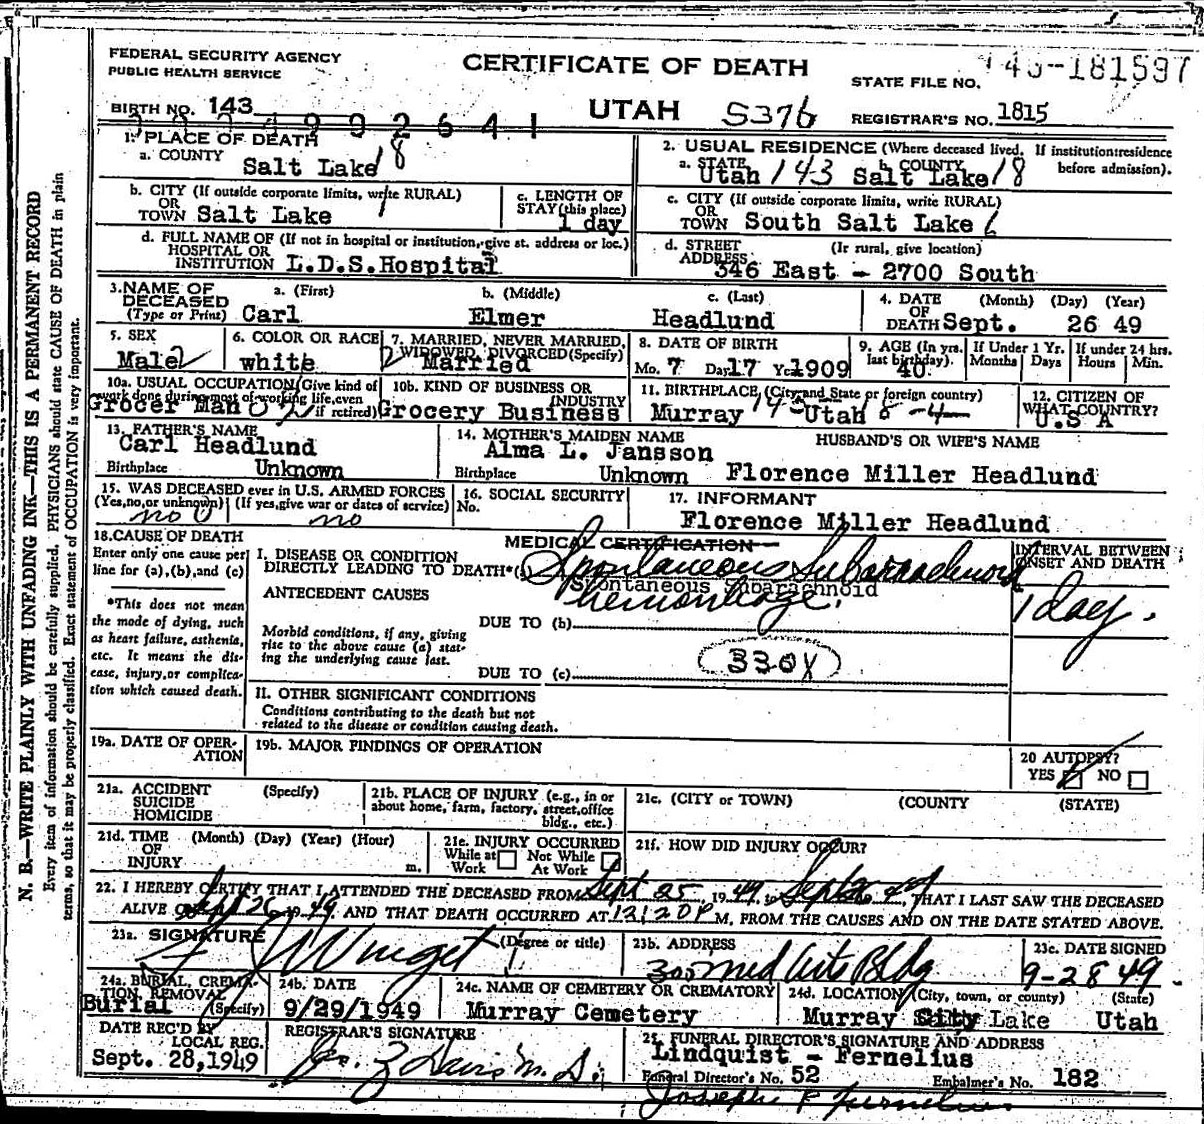 FEDERAL SECURITY AGENCY
PUBLIC HEALTH SERVICE
CERTIFICATE OF DEATH
STATE FILE NO. 143-181597
BIRTH NO. 143
UTAH S376
REGISTRAR'S NO. 1815
1. PLACE OF DEATH
a. COUNTY Salt Lake 18
2. USUAL RESIDENCE (Where deceased lived. If institution:residence before admission).
a. STATE Utah 143 b. COUNTY Salt Lake 18
b. CITY (If outside corporate limits, write RURAL) OR TOWN Salt Lake 1
c. LENGTH OF STAY (this place) 1 day
c. CITY (If outside corporate limits, write RURAL) OR TOWN South Salt Lake 6
d. FULL NAME OF (If not in hospital or institution, give st. address or loc.) HOSPITAL OR INSTITUTION L.D.S.Hospital
d. STREET ADDRESS (Ir rural, give location) 346 East - 2700 South
3. NAME OF DECEASED (Type or Print)
a. (First) Carl
b. (Middle) Elmer
c. (Last) Headlund
4. DATE OF DEATH (Month) (Day) (Year) Sept. 26 49
5. SEX Male
6. COLOR OR RACE white
7. MARRIED, NEVER MARRIED, WIDOWED, DIVORCED (Specify) Married
8. DATE OF BIRTH Mo. 7 Day 17 Yr. 1909
9. AGE (In yrs. last birthday). 40
If Under 1 Yr. Months Days
If under 24 hrs. Hours Min.
10a. USUAL OCCUPATION (Give kind of work done during most of working life, even if retired) Grocer Man
10b. KIND OF BUSINESS OR INDUSTRY Grocery Business
11. BIRTHPLACE (City and State or foreign country) Murray Utah
12. CITIZEN OF WHAT COUNTRY? U.S A
13. FATHER'S NAME Carl Headlund
Birthplace Unknown
14. MOTHER'S MAIDEN NAME Alma L. Jansson
Birthplace Unknown
HUSBAND'S OR WIFE'S NAME
Florence Miller Headlund
15. WAS DECEASED ever in U.S. ARMED FORCES
(Yes, no, or unknown) (If yes, give war or dates of service)
no 0 no
16. SOCIAL SECURITY No.
17. INFORMANT
Florence Miller Headlund
18. CAUSE OF DEATH
Enter only one cause per line for (a), (b), and (c)
MEDICAL CERTIFICATION
INTERVAL BETWEEN ONSET AND DEATH
I. DISEASE OR CONDITION DIRECTLY LEADING TO DEATH*(a) Spontaneous Subarachnoid
Spontaneous Subarachnoid
hemorrhage.
1 day.
*This does not mean the mode of dying, such as heart failure, asthenia, etc. It means the disease, injury, or complication which caused death.
ANTECEDENT CAUSES
DUE TO (b)
Morbid conditions, if any, giving rise to the above cause (a) stating the underlying cause last.
330X
DUE TO (c)
II. OTHER SIGNIFICANT CONDITIONS
Conditions contributing to the death but not related to the disease or condition causing death.
19a. DATE OF OPERATION
19b. MAJOR FINDINGS OF OPERATION
20 AUTOPSY?
YES NO
21a. ACCIDENT SUICIDE HOMICIDE (Specify)
21b. PLACE OF INJURY (e.g., in or about home, farm, factory, street, office bldg., etc.)
21c. (CITY or TOWN) (COUNTY (STATE)
21d. TIME OF INJURY (Month) (Day) (Year) (Hour) m.
21e. INJURY OCCURRED
While at Work Not While At Work
21f. HOW DID INJURY OCCUR?
22. I HEREBY CERTIFY THAT I ATTENDED THE DECEASED FROM Sept 25, 1949, to Sept 26 49, THAT I LAST SAW THE DECEASED
ALIVE ON Sept 26, 1949, AND THAT DEATH OCCURRED AT 12:20 P M, FROM THE CAUSES AND ON THE DATE STATED ABOVE.
23a. SIGNATURE (Degree or title)
23b. ADDRESS Med Arts Bldg
23c. DATE SIGNED 9-28 49
24a. BURIAL, CREMATION, REMOVAL (Specify) Burial
24b. DATE 9/29/1949
24c. NAME OF CEMETERY OR CREMATORY Murray Cemetery
24d. LOCATION (City, town, or county) (State) Murray Lake Utah
DATE REC'D BY LOCAL REG. Sept. 28,1949
REGISTRAR'S SIGNATURE
Davis M.D.
25. FUNERAL DIRECTOR'S SIGNATURE AND ADDRESS
Lindquist - Fernelius
Funeral Director's No. 52 Embalmer's No. 182
Joseph P Fernelius
N. B.—WRITE PLAINLY WITH UNFADING INK—THIS IS A PERMANENT RECORD
Every item of information should be carefully supplied. PHYSICIANS should state CAUSE OF DEATH in plain
terms, so that it may be properly classified. Exact statement of OCCUPATION is very important.